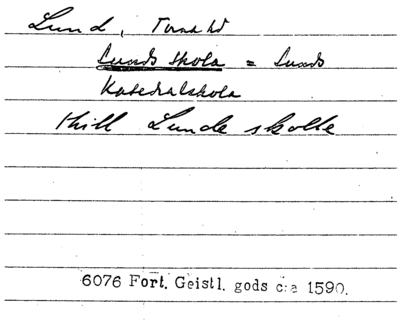 Lund, Torna hd
Lunds skola = Lunds
Katedralskola
thill Lunde skolle
6076 Fort. Geistl. gods c:a 1590.